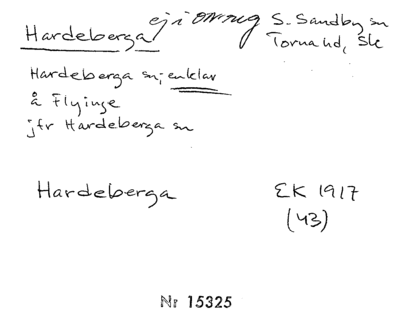 Hardeberga ej i omreg S. Sandby sn
Torna hd, Sk
Hardeberga sn; enklav
å Flyinge
jfr Hardeberga sn
Hardeberga EK 1917
(43)
Nr 15325